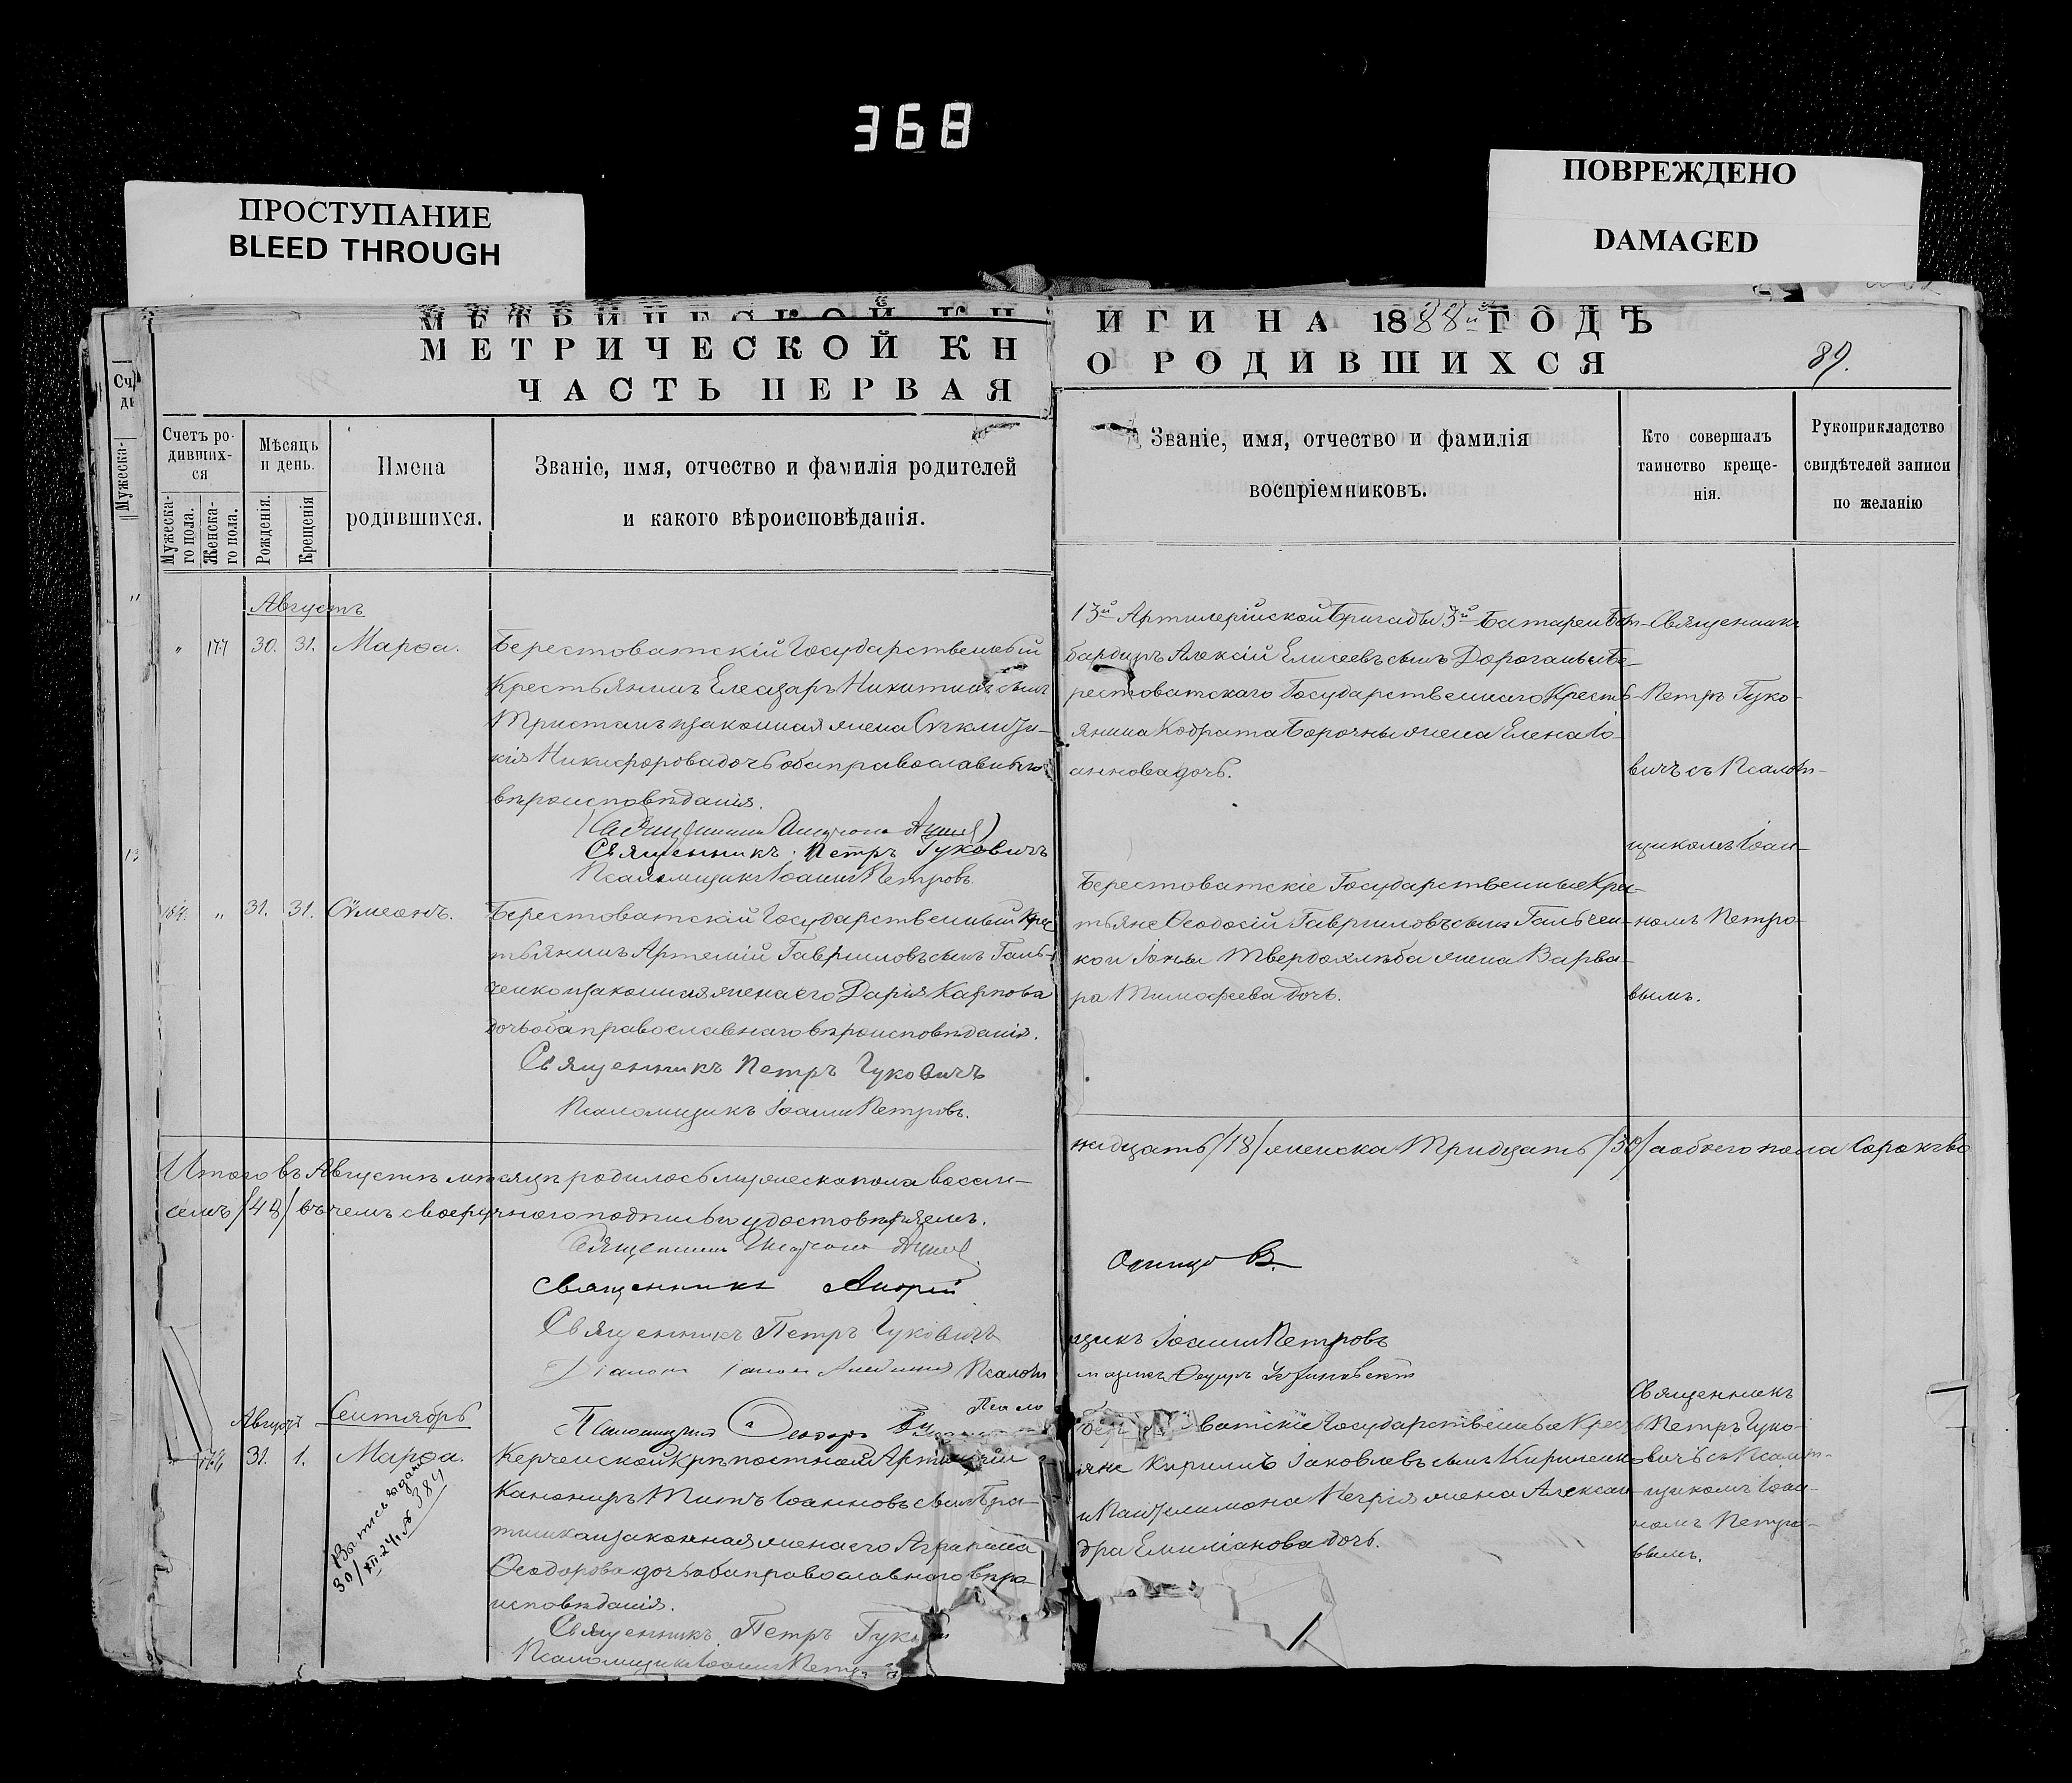 368
ПРОСТУПАНИЕ
BLEED THROUGH
ПОВРЕЖДЕНО
DAMAGED
МЕТРИЧЕСКОЙ КН
ЧАСТЬ ПЕРВАЯ
ИГИ НА 1888й ГОДЪ
О РОДИВШИХСЯ
89.
Мужеска-
Счетъ ро-
дивших-
ся
Мужеска-
го пола.
Женска-
го пола.
Мѣсяцъ
и день.
Рожденія.
Крещенія
Имена
родившихся.
Званіе, имя, отчество и фамилія родителей
и какого вѣроисповѣданія.
Званіе, имя, отчество и фамилія
воспріемниковъ.
Кто совершалъ
таинство креще-
нія.
Рукоприкладство
свидѣтелей записи
по желанію
Августъ
„ 177 30. 31. Марѳа.
Берестоватскій Государственный
Крестьянинъ Елеазаръ Никитинъ сынъ
законная жена
кія Никифорова дочь оба православнаго
вѣроисповѣданія.
Священникъ Петръ Гуковичъ
Псаломщикъ Іоаннъ Петровъ.
13й Артилерійской Бригады 3й Батареи Бом-
бардиръ Алексій Елисеевъ сынъ и Бе-
рестоватскаго Государственнаго Кресть-
янина Кодрата жена Елена Іо-
аннова дочь.
Священникъ
Петръ Гуко-
вичъ съ Псалом-
щикомъ Іоан-
номъ Петро-
вымъ.
„ 31. 31. Сѵмеонъ.
Берестоватскій Государственный Крес
тьянинъ Артемій Гаврииловъ сынъ Галь-
ченко и законная жена его Дарія Карпова
дочь оба православнаго вѣроисповѣданія.
Священникъ Петръ Гуковичъ
Псаломщикъ Іоаннъ Петровъ.
Берестоватскіе Государственные Крес-
тьяне Ѳеодосій Гаврииловъ сынъ Гальчен-
ко и Іоны Твердохлѣба жена Варва-
ра Тимофеева дочь.
Итого въ Августѣ мѣсяцѣ родилось мужеска пола восем-
надцать /18/ женска Тридцать /30/ а обоего пола Сорокъ во
семь /48/ въ чемъ своеручного подписью удостовѣряемъ.
Священникъ
Священникъ Андрей
Одинцо В.
Священникъ Петръ Гуковичъ
Псалом
щикъ Іоаннъ Петровъ
Псало
мщикъ Ѳеодоръ
Псаломщикъ Ѳеодоръ
Августъ Сентябрь
31. 1. Марѳа.
Выпись выдана
30/XII-24г. № 384
Керченской Крѣпостной Артиллеріи
Канониръ Титъ Іоанновъ сынъ
и законная жена его Агрипина
Ѳеодорова дочь оба православнаго вѣро-
исповѣданія.
Священникъ Петръ Гуко
Псаломщикъ Іоаннъ Петр
Бер ватскіе Государственные Крес
яне Кириллъ Іаковлевъ сынъ Кириченко
и Пантелимона Негрія жена Алексан-
дра Емиліанова дочь.
Священникъ
Петръ Гуко-
вичъ съ Псалом-
щикомъ Іоан-
номъ Петро-
вымъ.